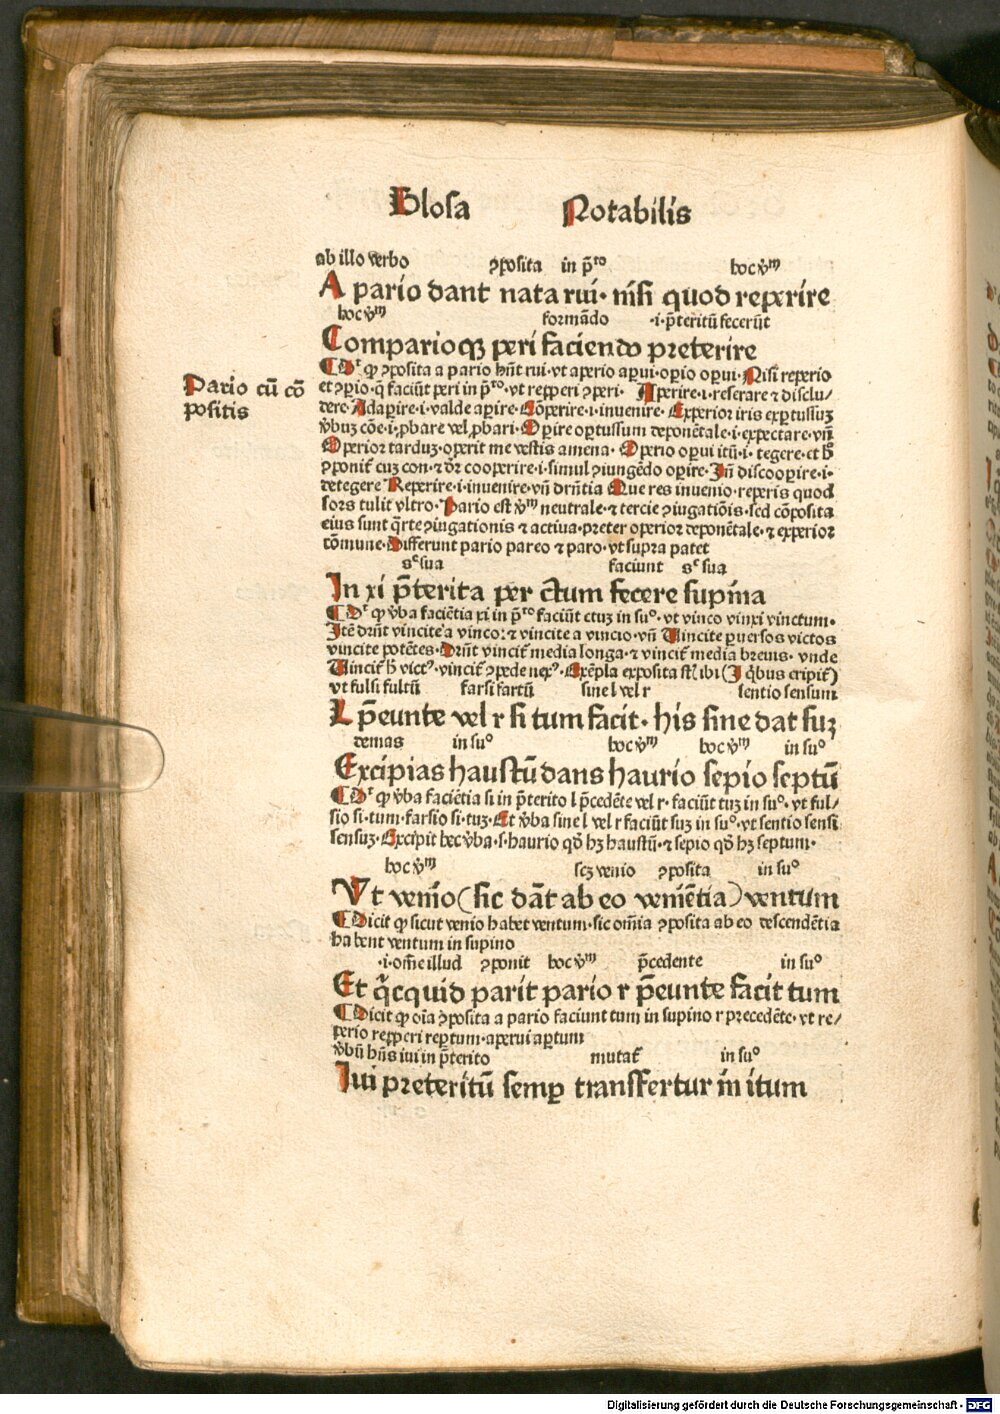 Glosa Notabilis
ab illo verbo ꝯposita in p̄ᵗᵒ hoc v̄ᵐ
A pario dant nata rui· nisi quod reperire
hoc v̄ᵐ formādo ·i·p̄teritū fecerūt
Comparioqꝫ peri faciendo preterire
Pario cū cō
positis
¶ Dʳ ꝙ ꝯposita a pario hn̄t rui·vt aperio aꝑui·oꝑio oꝑui·Nisi reperio
et ꝯꝑio·q̄ faciūt peri in p̄ᵗᵒ·vt repꝑeri ꝯꝑeri· Aperire·i·reserare ⁊ disclu/
dere·Adaꝑire·i·valde aꝑire·Cōperire·i·inuenire·Experior iris exꝑtussuꝫ
v̄buꝫ cōe·i·ꝓbare vel ꝓbari·Oꝑire oꝑtussum deponētale·i·expectare·vn̄
Operior tarduꝫ·operit me vestis amena· Operio oꝑui itū·i·tegere·et
ꝯponit᷑ cuꝫ con·⁊ dr̄ cooperire·i·simul ꝯiungēdo oꝑire·In̄ discooꝑire·i·
detegere Reperire·i·inuenire·vn̄ drn̄tia Que res inuenio·reperis quod
sors tulit vltro·Pario est v̄ᵐ neutrale·⁊ tercie ꝯiugatiōis·sed cōposita
eius sunt q̄rte ꝯiugationis ⁊ actiua·preter operior deponētale·⁊ experior
cōmune·Differunt pario pareo ⁊ paro·vt supra patet
sᶜ sua faciunt sᶜ sua
In xi p̄terita per ctum fecere supina
¶ Dʳ ꝙ v̄ba faciētia xi in p̄ᵗᵒ faciūt ctuꝫ in suᵒ·vt vinco vinxi vinctum·
Itē drn̄t vincite a vinco:⁊ vincite a vincio·vn̄ Vincite ꝑuersos victos
vincite potētes·Drn̄t vincit᷑ media longa·⁊ vincit᷑ media breuis· vnde
Vincit᷑ h̄ victꝰ·vincit᷑ ꝯpede nexꝰ·Exēpla exposita ibi (I q̇bus eripit᷑)
vt fulsi fultū farsi fartū sine l vel r sentio sensum
L p̄eunte vel r si tum facit· his sine dat suꝫ
demas in suᵒ hoc v̄ᵐ hoc v̄ᵐ in suᵒ
Excipias haustū dans haurio sepio septū
¶ Dʳ ꝙ v̄ba faciētia si in p̄terito l p̄cedēte vel r· faciūt tuꝫ in suᵒ·vt ful/
sio si·tum·farsio si·tuꝫ·Et v̄ba sine l vel r faciūt suꝫ in suᵒ·vt sentio sensi
sensuꝫ·Excipit hec v̄ba·s·haurio qd̄ hꝫ haustū·⁊ sepio qd̄ hꝫ septum·
hoc v̄ᵐ scꝫ venio ꝯposita in suᵒ
Vt venio (sic dāt ab eo veniētia) ventum
¶ Dicit ꝙ sicut venio habet ventum·sic omīa ꝯposita ab eo descendētia
habent ventum in supino
·i·om̄e illud ꝯponit hoc v̄ᵐ p̄cedente in suᵒ
Et q̇cquid parit pario r p̄eunte facit tum
¶ Dicit ꝙ oīa ꝯposita a pario faciunt tum in supino r precedēte·vt re/
perio repꝑeri reꝑtum·aperui aꝑtum
v̄bū hn̄s iui in p̄terito mutat᷑ in suᵒ
Iui preteritū semꝑ transfertur in itum
Digitalisierung gefördert durch die Deutsche Forschungsgemeinschaft - DFG